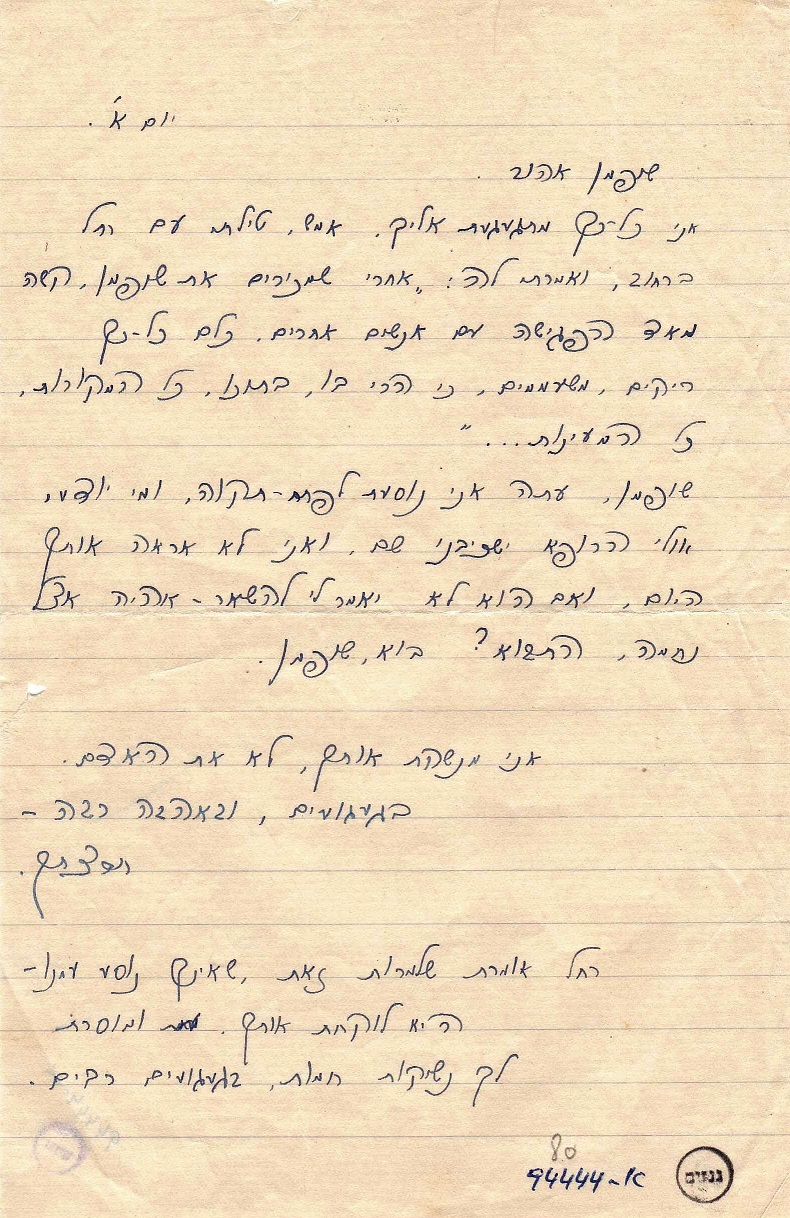 יום א'.
שופמן אהוב.
אני כל-כך מתגעגעת אליך. אמש, טילתי עם רחל
ברחוב, ואמרתי לה: "אחרי שמכירים את שופמן, קשה
מאד הפגישה עם אנשים אחרים. כלם כל-כך
ריקים, משעממים, כי הרי בו, בתוכו, כל המקורות,
כל המעינות..."
שופמן, עתה אני נוסעת לפתח-תקוה, ומי יודע,
אולי הרופא ישכיבני שם, ואני לא אראה אותך
היום, ואם הוא לא יאמר לי להשאר - אהיה אצל
נחמה, התבוא? בוא, שופמן.
אני מנשקת אותך, לא את האדם.
בגעגועים, ובאהבה רבה -
רחל אומרת שלמרות זאת, שאינך נוסע עמנו -
היא לוקחת אותך. ומוסרת
לך נשיקות חמות, בגעגועים רבים.
80
94444-א
גנזים